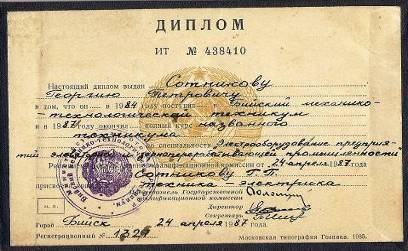 ДИПЛОМ
ИТ № 438410
Настоящий диплом выдан Сотникову
Георгию Петровичу
в том, что он в 1984 году поступил в Бийский механико-
технологический техникум
и в 1987 году окончил полный курс названного
техникума
по специальности Электрооборудование предприя-
тий зерноперерабатывающей промышленности
комиссии от 24 апреля 1987 г.
Сотникову Г.П.
техника-электрика
Председатель Государственной
квалификационной комиссии
Директор
Секретарь
Город Бийск 24 апреля 1987 г.
Регистрационный № 1329
Московская типография Гознака. 1985.